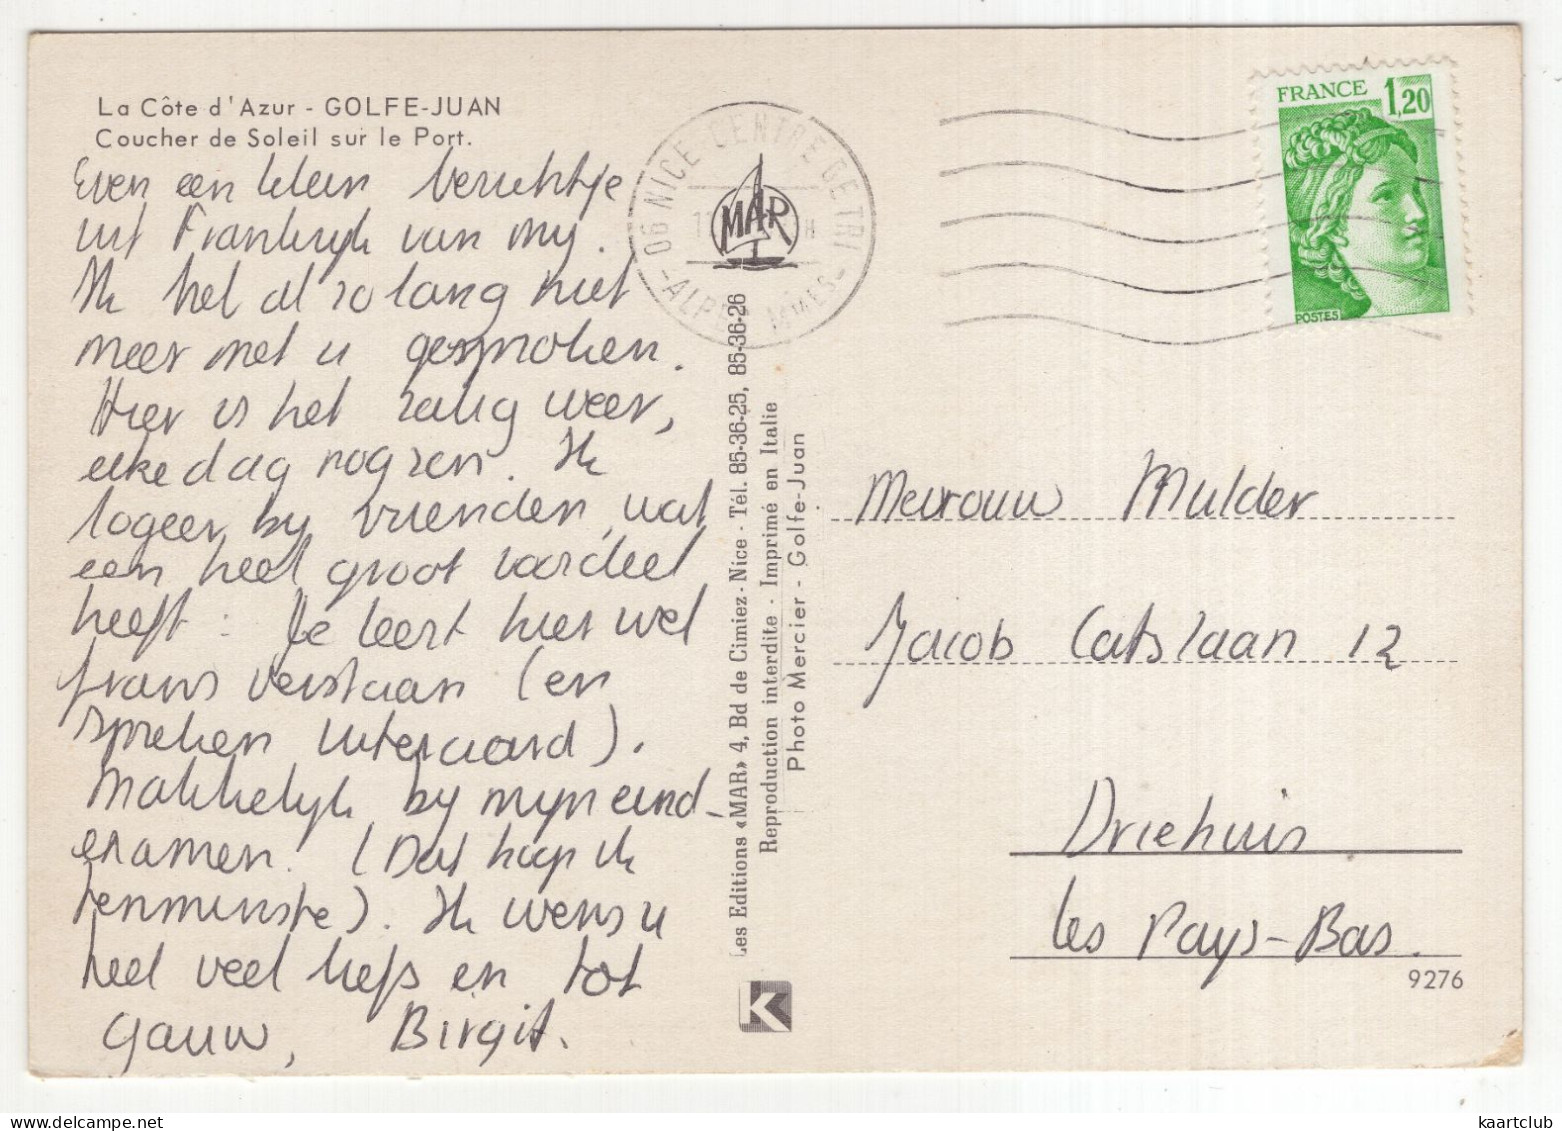 La Côte d'Azur - GOLFE-JUAN
Coucher de Soleil sur le Port.
Even een klein berichtje
uit Frankrijk van mij.
Ik heb al zolang niet
meer met u gesproken.
Hier is het zalig weer,
elke dag nog zon. Ik
logeer bij vrienden, wat
een heel groot voordeel
heeft: Je leert hier wel
frans verstaan (en
spreken uiteraard).
Makkelijk bij mijn eind-
examen. (Dat hoop ik
tenminste). Ik wens u
heel veel liefs en tot
gauw, Birgit.
06 NICE CENTRE GE TRI
ALPES MMES
MAR
Les Editions «MAR» 4, Bd de Cimiez - Nice - Tél. 85-36-25, 85-36-26
Reproduction interdite - Imprimé en Italie
Photo Mercier - Golfe-Juan
K
FRANCE 1,20
POSTES
Mevrouw Mulder
Jacob Catslaan 12
Driehuis
Les Pays-Bas.
9276
kaartclub